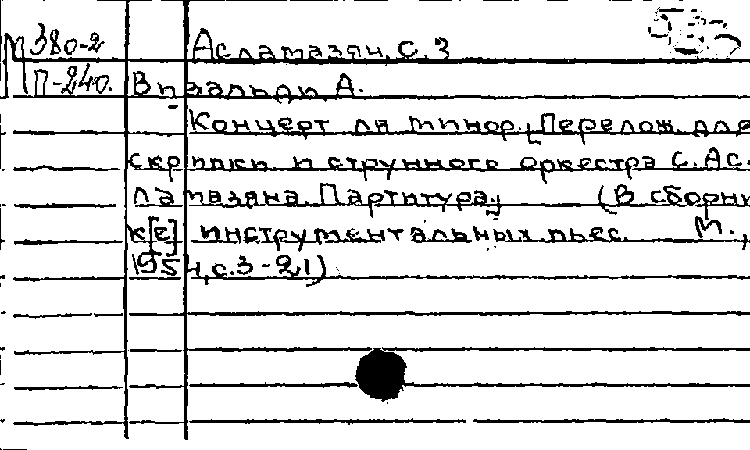 М 380-2 Асламазян, С. З
П-240. Вивальди, А.
Концерт ля минор. [Перелож. для
скрипки и струнного оркестра С. Ас-
ламазяна. Партитура] (В сборни-
к[е] инструментальных пьес. М.,
1954, с. 3-21)